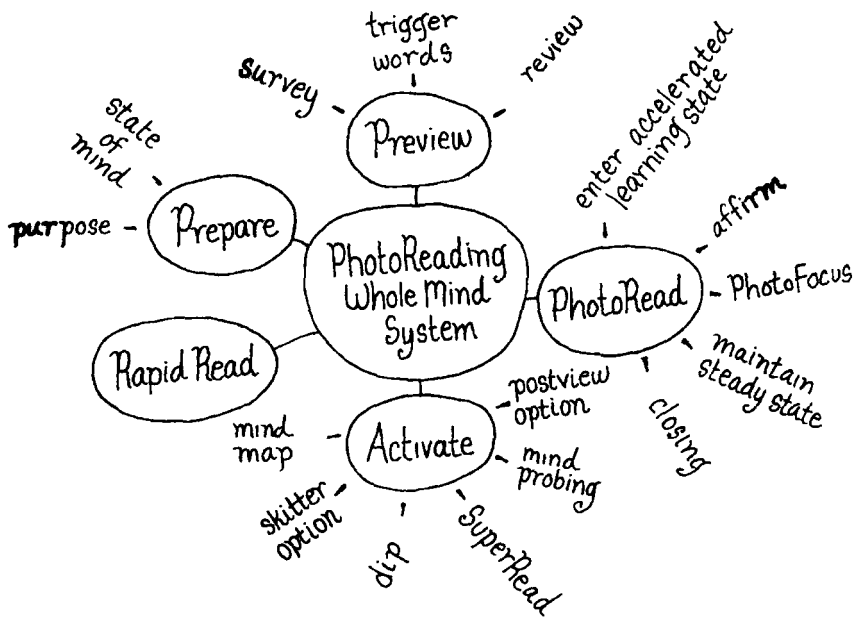 PhotoReading
Whole Mind
System
Prepare
purpose
state
of
mind
Preview
survey
trigger
words
review
PhotoRead
enter accelerated
learning state
affirm
PhotoFocus
maintain
steady state
closing
Activate
postview
option
mind
probing
SuperRead
dip
skitter
option
mind
map
Rapid Read